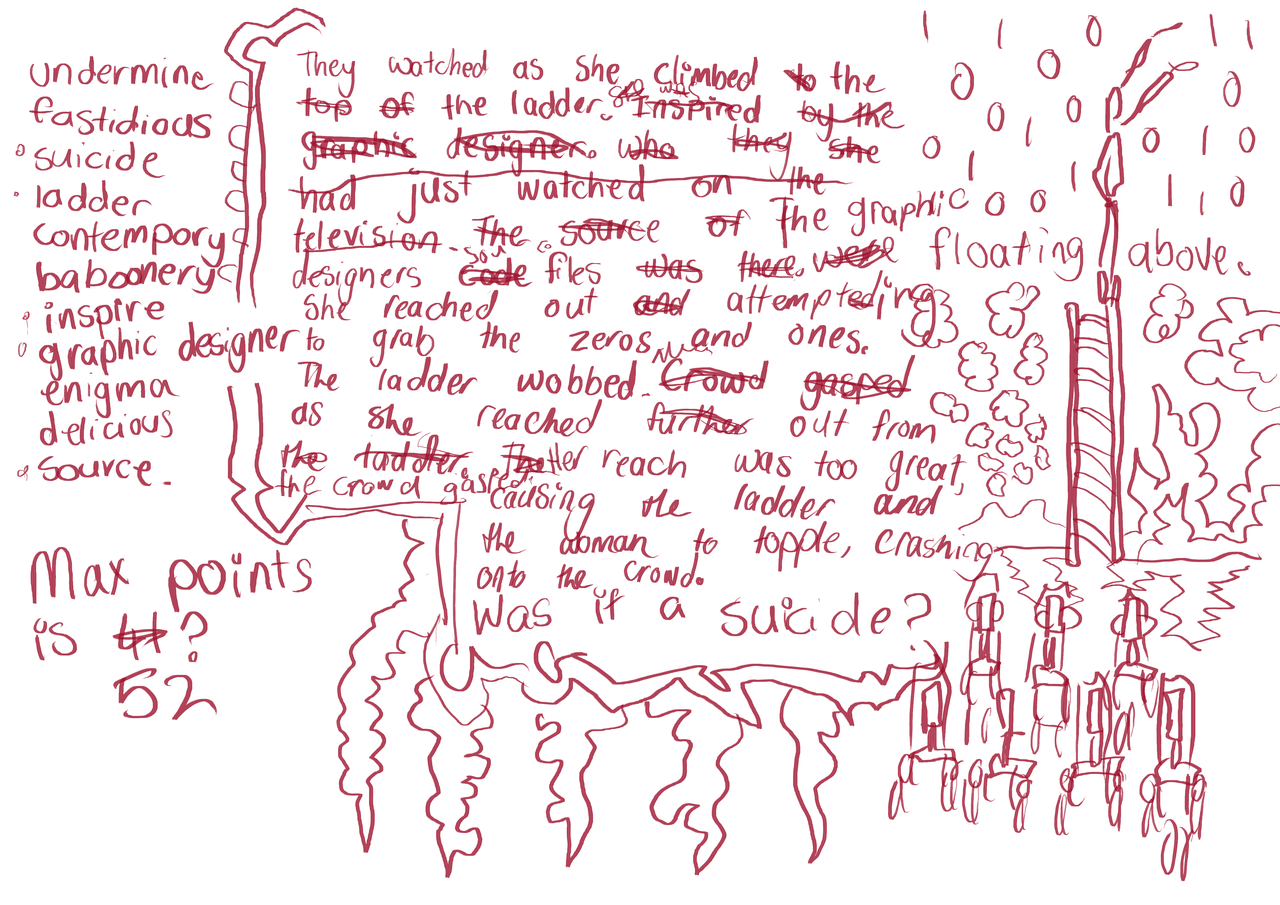 undermine
fastidious
suicide
ladder
contempory
baboonery
inspire
graphic designer
enigma
delicious
source.
Max points
is #?
52
They watched as she climbed to the
top of the ladder. She was Inspired by the
graphic designer. who they she
had just watched on the
television. The source of The graphic
designers code source files was there. were floating above.
She reached out and attempteding
to grab the zeros and ones.
The ladder wobbed. Crowd gasped
as she reached further out from
the ladder. The Her reach was too great,
the crowd gasped.
causing the ladder and
the woman to topple, crashing
onto the crowd.
Was it a suicide?